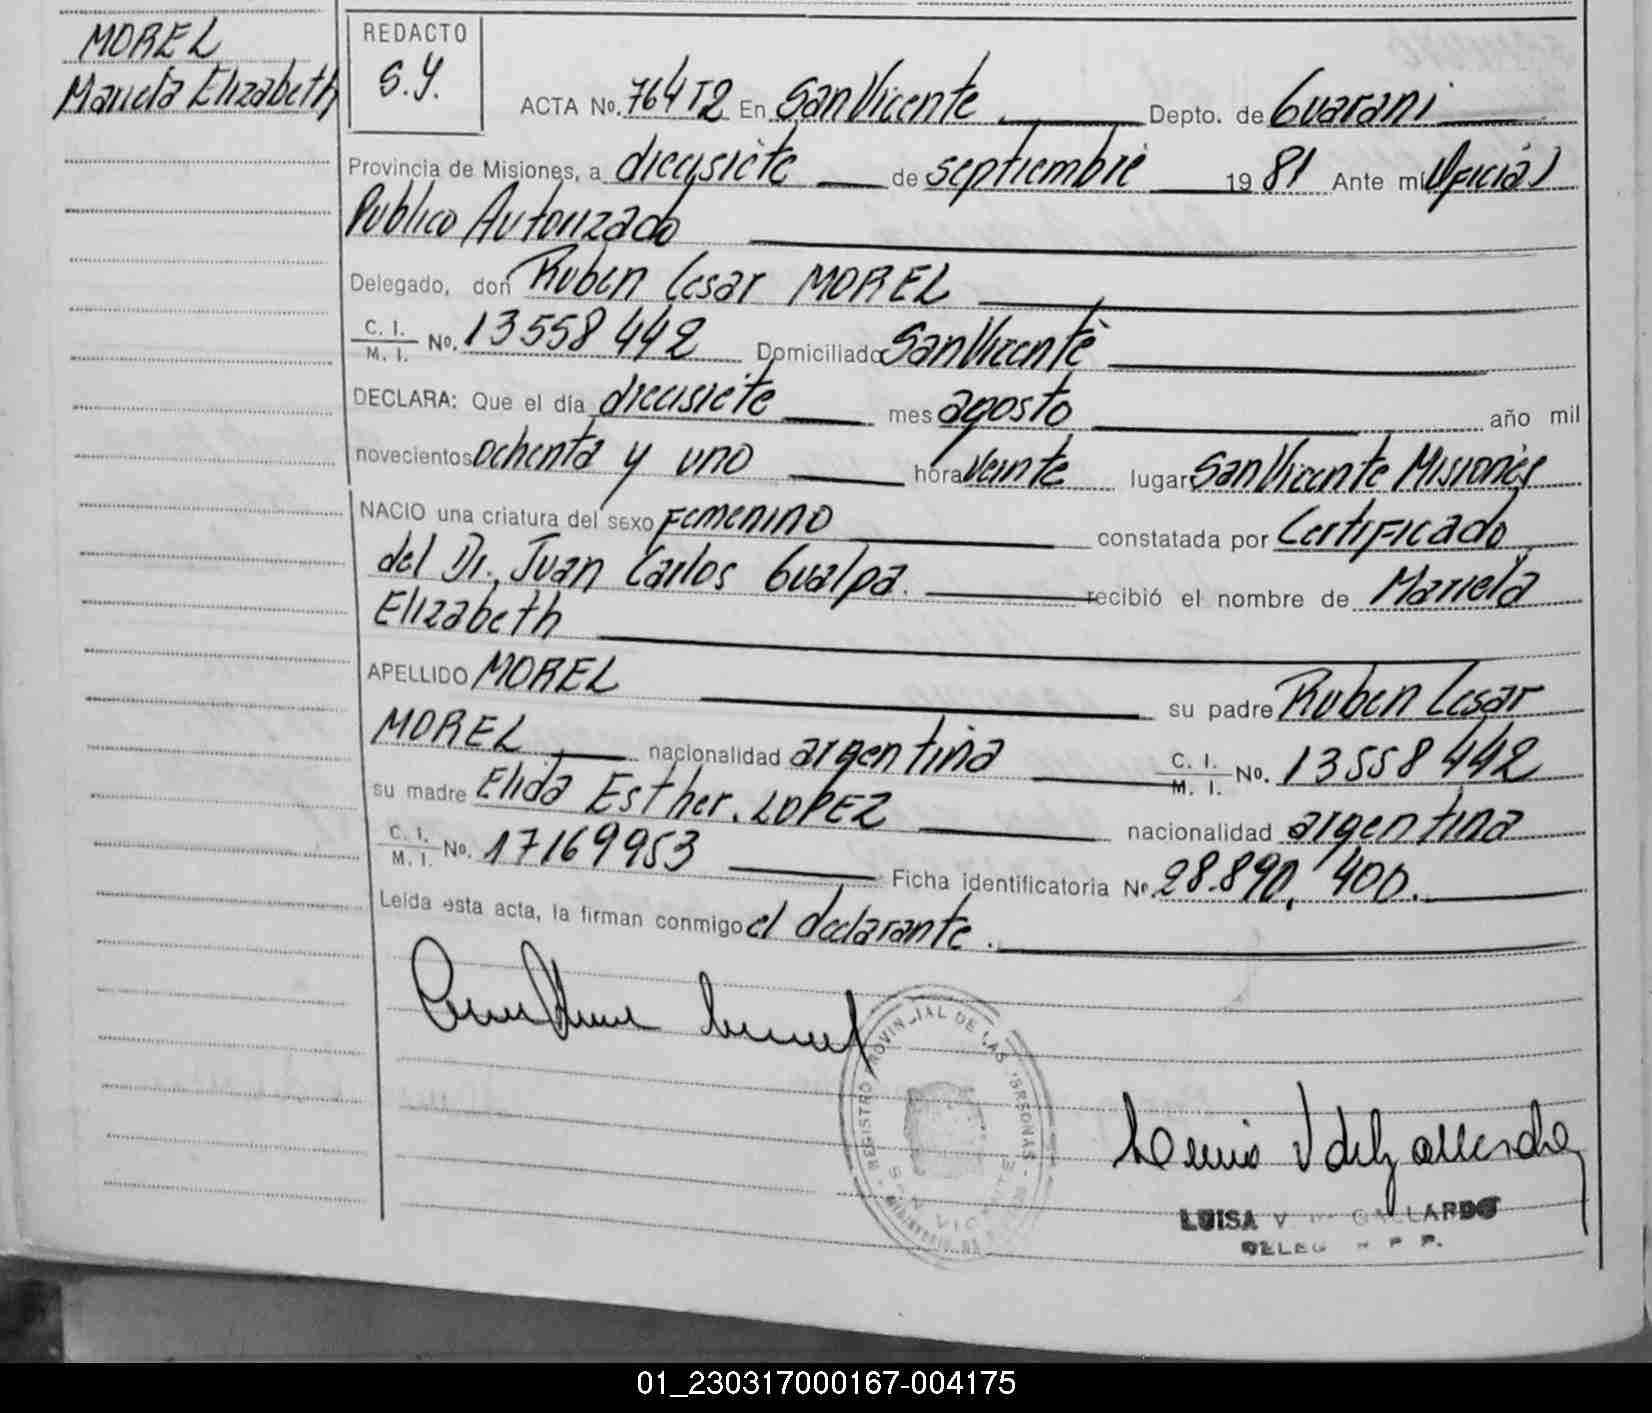 MOREL
Mariela Elizabeth
REDACTO
S.Y.
ACTA No. 764 T2 En San Vicente Depto. de Guarani
Provincia de Misiones, a diecisiete de septiembre 19 81 Ante mí Oficial
Publico Autorizado
Delegado, don Ruben Cesar MOREL
C. I. / M. I. No. 13558442 Domiciliado San Vicente
DECLARA: Que el día diecisiete mes agosto año mil
novecientos ochenta y uno hora veinte lugar San Vicente Misiones
NACIO una criatura del sexo Femenino constatada por Certificado
del Dr. Juan Carlos Gualpa. recibió el nombre de Mariela
Elizabeth
APELLIDO MOREL su padre Ruben Cesar
MOREL nacionalidad argentina C. I. / M. I. No. 13558442
su madre Elida Esther. LOPEZ nacionalidad argentina
C. I. / M. I. No. 17169953 Ficha identificatoria No 28.890.400.
Leída esta acta, la firman conmigo el declarante.
REGISTRO PROVINCIAL DE LAS PERSONAS
SAN VICENTE
LUISA V. GALLARDO
01_230317000167-004175